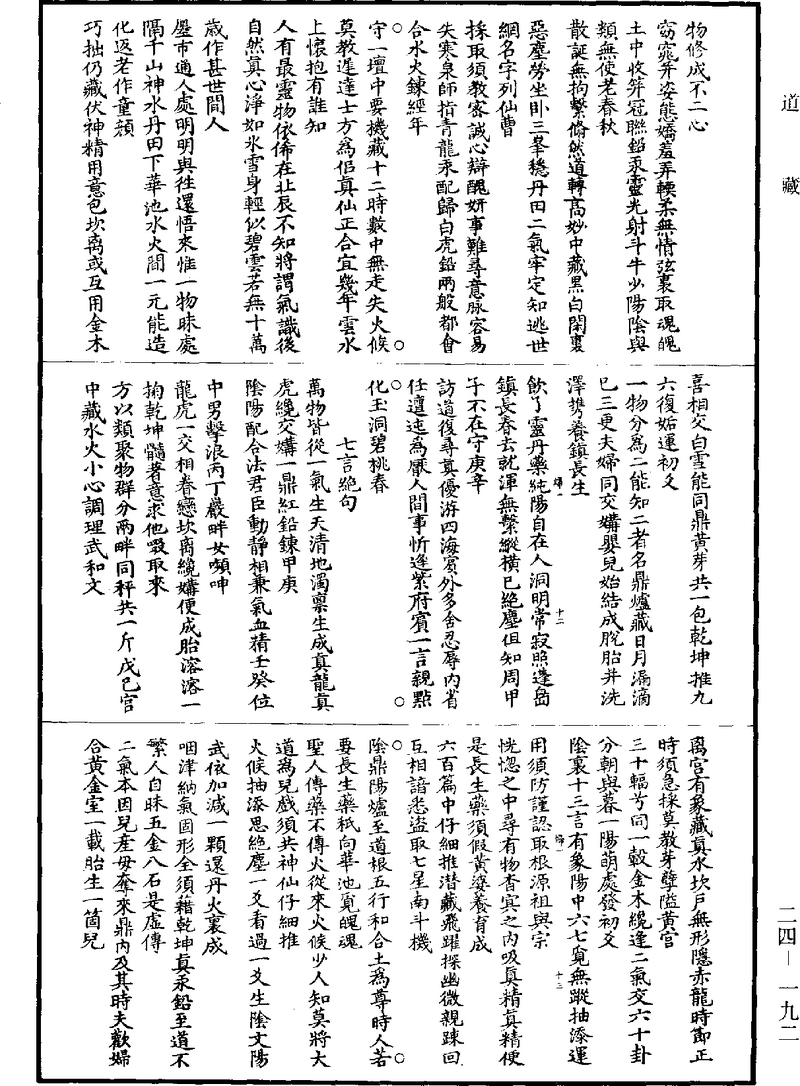 道藏
物修成不二心
窈窕并姿態嬌羞弄輭柔無情弦裏取魂魄
土中收笄冠聯鉛汞靈光射斗牛少陽陰與
類無使老春秋
散誕無拘繫翛然道轉高妙中藏黑白閑裏
惡塵勞坐卧三峯穩丹田二氣牢定知逃世
網名字列仙曹
採取須教密誠心辯醜妍事難尋意脉容易
失寒泉師指青龍汞配歸白虎鉛兩般都會
合水火鍊經年
守一壇中要機藏十二時數中無走失火候
莫教遲達士方為侣真仙正合宜幾年雲水
上懷抱有誰知
人有最靈物依俙在北辰不知將謂氣識後
自然真心淨如氷雪身輕似碧雲若無十萬
歲作甚世間人
㕓市通人處明明與往還悟來惟一物昧處
隔千山神水丹田下華池水火間一元能造
化返老作童顔
巧拙仍藏伏神精用意包坎离或互用金木
喜相交白雪能同鼎黄芽共一包乾坤推九
六復姤運初爻
一物分為二能知二者名鼎爐藏日月漏滴
已三更夫婦同交媾嬰兒始結成脫胎并洗
澤携養鎮長生
飲了靈丹藥純陽自在人洞明常寂照蓬島
鎮長春去就渾無繫縱横已絶塵但知周甲
子不在守庚辛
訪道復尋真優游四海賓外多舍忍辱内省
任邅迍為厭人間事忻逢紫府賓一言親點
化玉洞碧桃春
七言絶句
萬物皆從一氣生天清地濁禀生成真龍真
虎纔交媾一鼎紅鉛鍊甲庚
陰陽配合法君臣動靜相兼氣血精壬癸位
中男擊浪丙丁巖畔女嚬呻
龍虎一交相眷戀坎离纔媾便成胎溶溶一
掬乾坤髓著意求他啜取來
方以類聚物群分兩畔同秤共一斤戊己宫
中藏水火小心調理武和文
离宫有象藏真水坎戶無形隱赤龍時節正
時須急採莫教芽孽隘黄宫
三十輻兮同一轂金木纔逢二氣交六十卦
分朝與暮一陽萌處發初爻
陰裏十三言有象陽中六七覓無蹤抽添運
用須防謹認取根源祖與宗
恍惚之中尋有物杳冥之内吸真精真精便
是長生藥須假黄婆養育成
六百篇中仔細推潜藏飛躍探幽微親踈回
互相諳悉盗取七星南斗機
陰鼎陽爐至道根五行和合土為尊時人若
要長生藥秖向華池覓魄魂
聖人傳藥不傳火從來火候少人知莫將大
道為兒戲須共神仙仔細推
火候抽添思絶塵一爻看過一爻生陰文陽
武依加減一顆還丹火裏成
咽津納氣固形全須藉乾坤真汞鉛至道不
繁人自昧五金八石是虚傳
二氣本因兒産母奪來鼎内及其時夫歡婦
合黄金室一載胎生一箇兒
二四－一九二